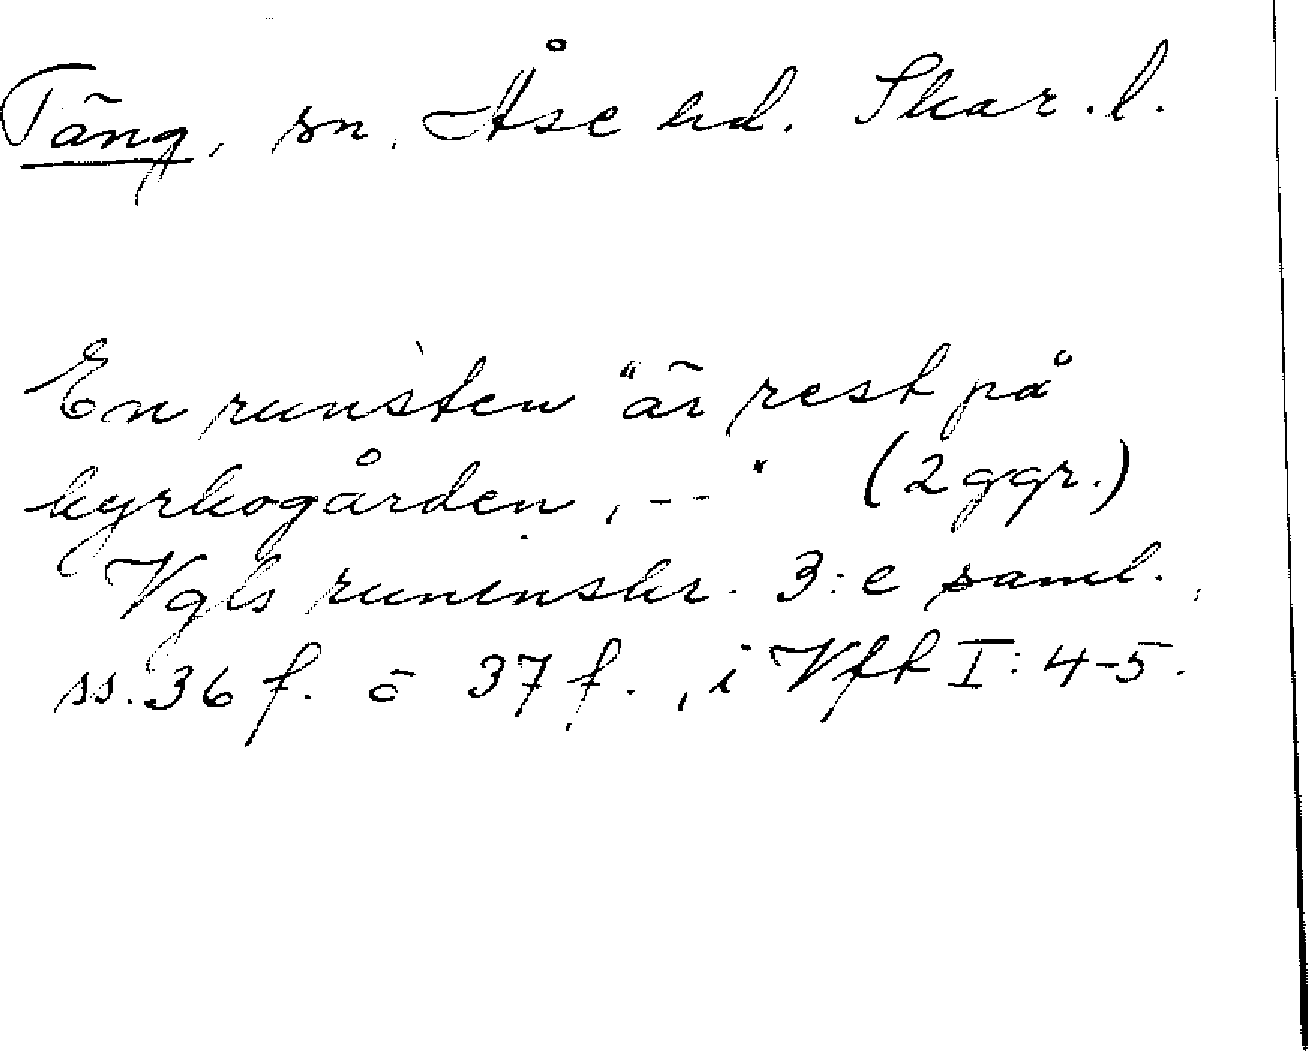 Täng, sn, Åse hd. Skar. l.
En runsten "är rest på
kyrkogården, --" (2 ggr.)
Vgls runinskr. 3:e saml.,
ss. 36 f. o 37 f., i Vfft I: 4-5.